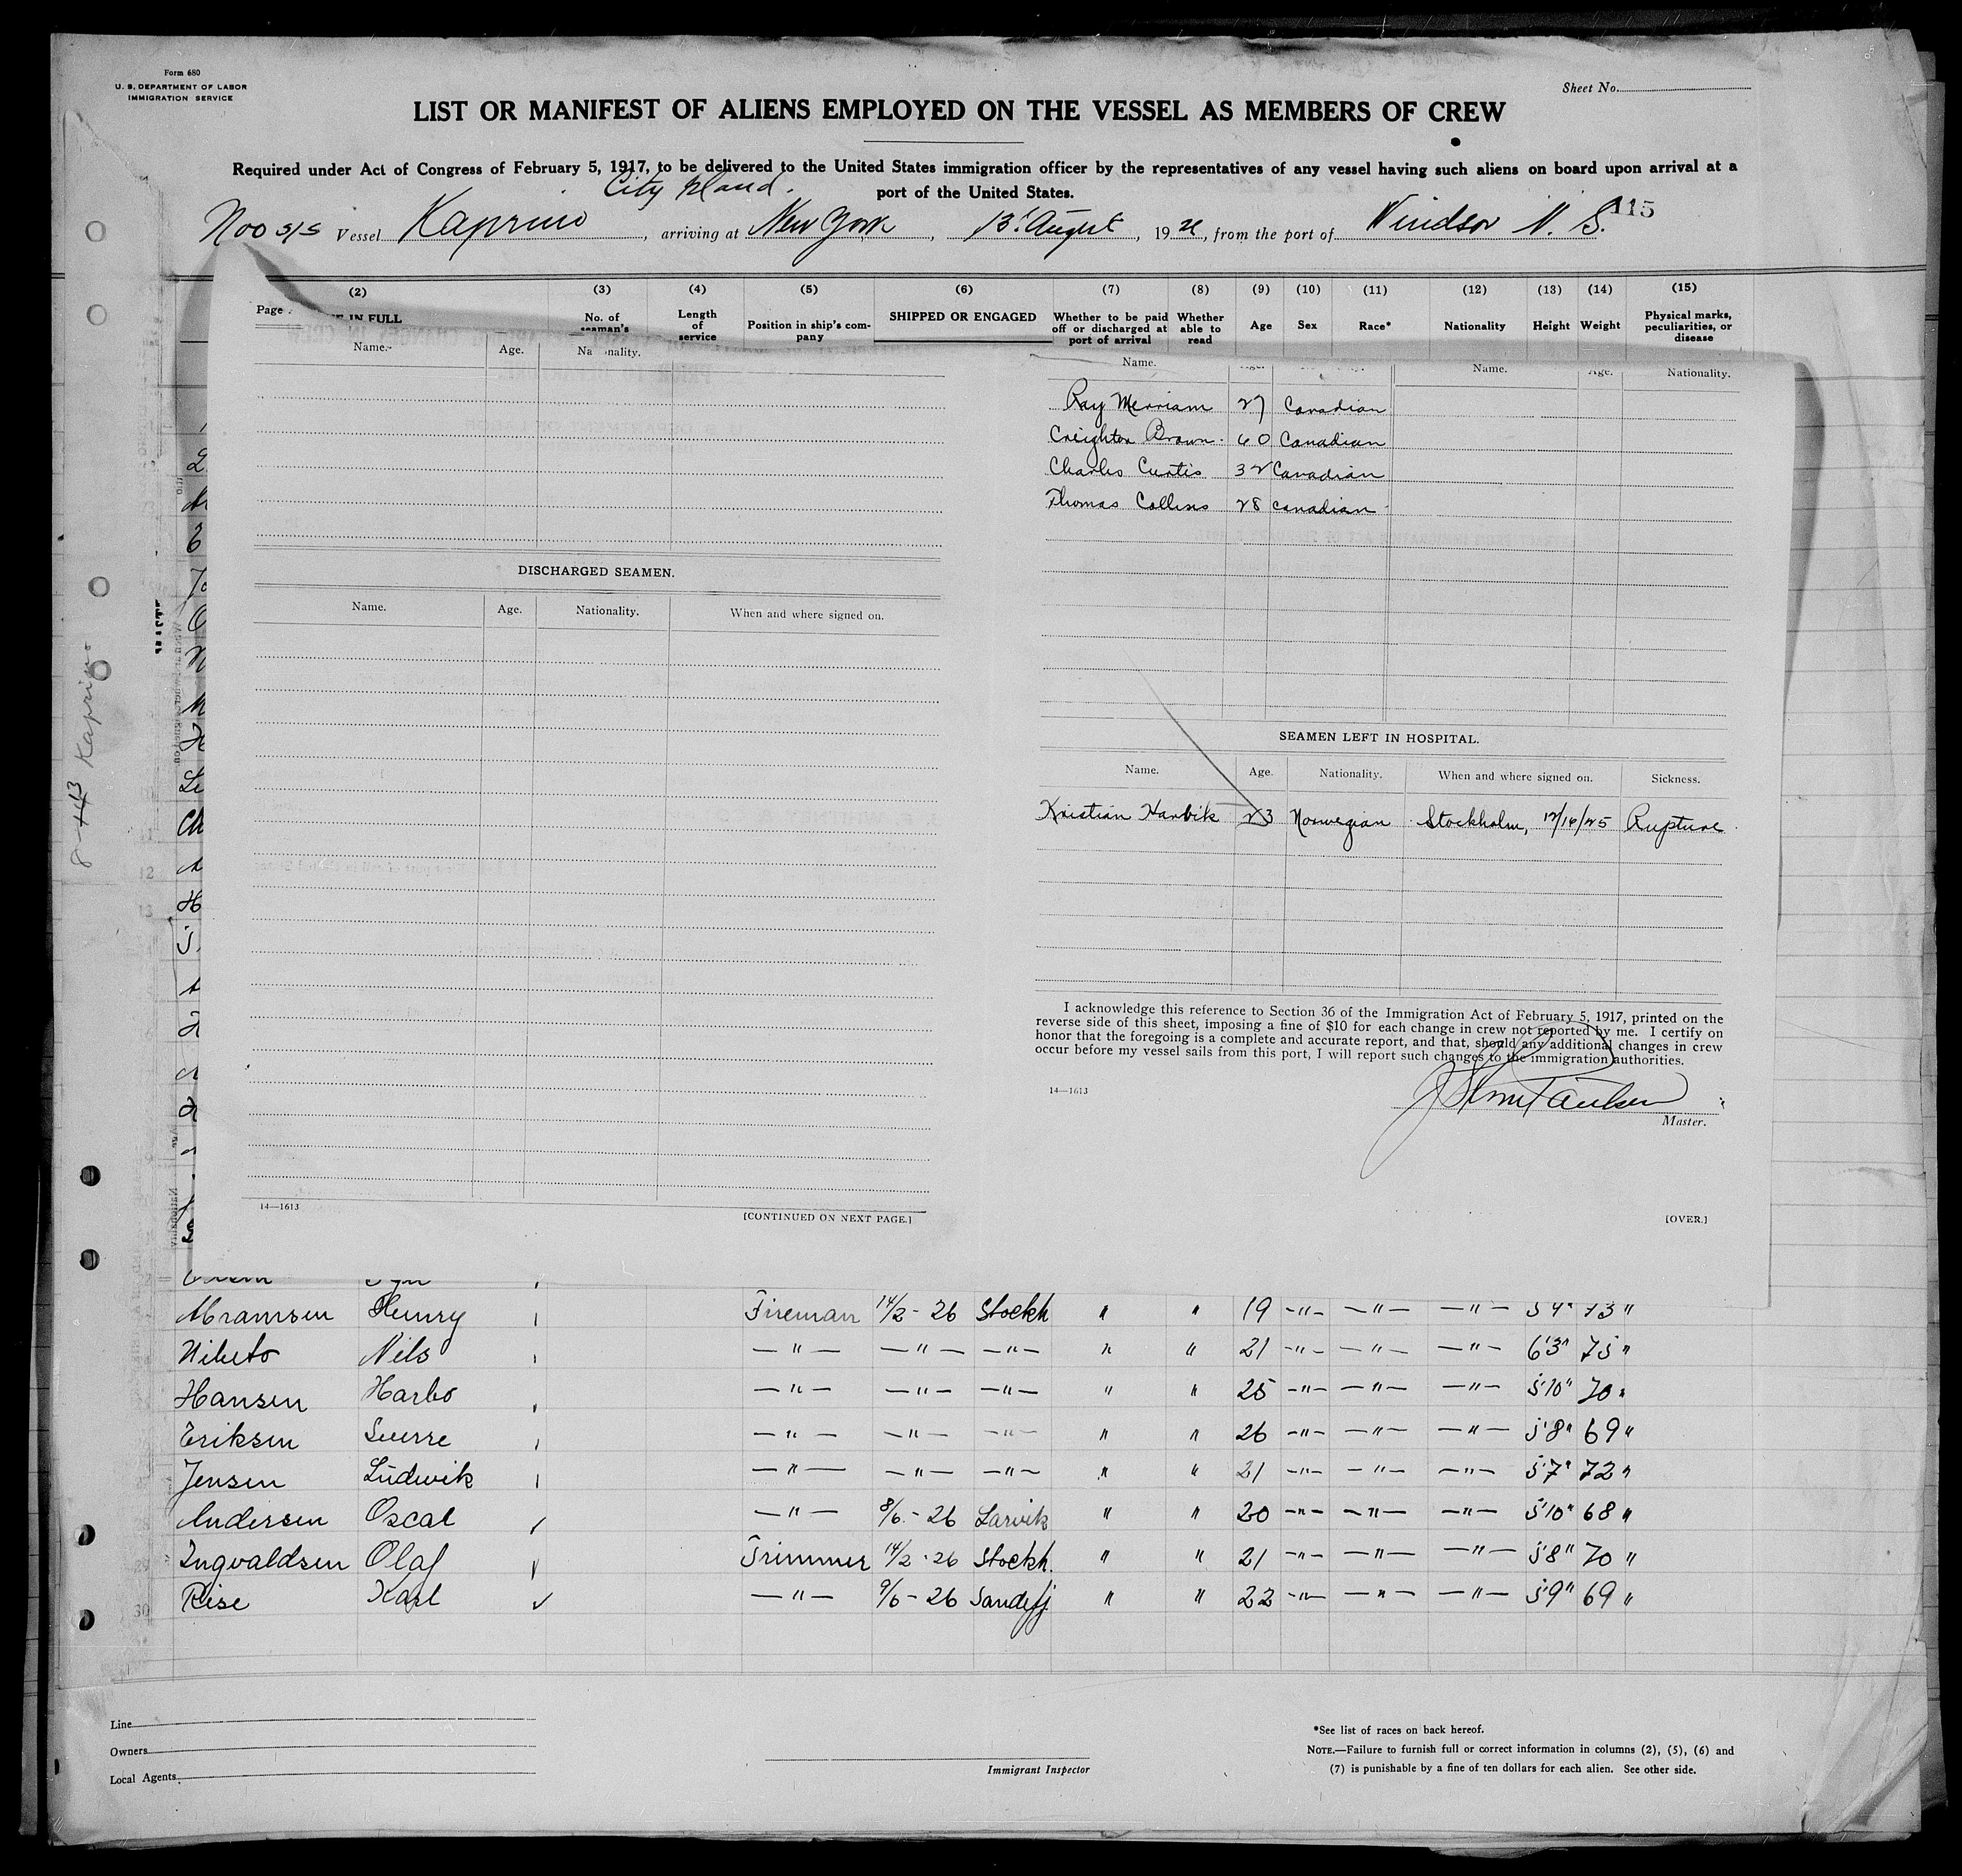 Form 680
U. S. DEPARTMENT OF LABOR
IMMIGRATION SERVICE
Sheet No.
LIST OR MANIFEST OF ALIENS EMPLOYED ON THE VESSEL AS MEMBERS OF CREW
Required under Act of Congress of February 5, 1917, to be delivered to the United States immigration officer by the representatives of any vessel having such aliens on board upon arrival at a
port of the United States.
City Island.
115
Vessel Kaprino, arriving at New York, 13' August, 19 26, from the port of Windsor N. S.
(2) (3) (4) (5) (6) (7) (8) (9) (10) (11) (12) (13) (14) (15)
Page IN FULL No. of seaman's Length of service Position in ship's company SHIPPED OR ENGAGED Whether to be paid off or discharged at port of arrival Whether able to read Age Sex Race* Nationality Height Weight Physical marks, peculiarities, or disease
Name. Age. Nationality.
DISCHARGED SEAMEN.
Name. Age. Nationality. When and where signed on.
14—1613
[CONTINUED ON NEXT PAGE.]
Name. Name. Age. Nationality.
Ray Merriam 27 Canadian
Creighton Brown. 60 Canadian
Charles Curtis 32 Canadian
Thomas Collins 28 Canadian
SEAMEN LEFT IN HOSPITAL.
Name. Age. Nationality. When and where signed on. Sickness.
Kristian Harbik 23 Norwegian Stockholm, 12/16/25 Rupture.
I acknowledge this reference to Section 36 of the Immigration Act of February 5, 1917, printed on the
reverse side of this sheet, imposing a fine of $10 for each change in crew not reported by me. I certify on
honor that the foregoing is a complete and accurate report, and that, should any additional changes in crew
occur before my vessel sails from this port, I will report such changes to the immigration authorities.
14—1613
Master.
[OVER.]
Kaprino
Abramsen Henry Fireman 14/2 - 26 Stockh " " 19 -"- -"- -"- 5'9" 73 "
Nils -"- -"- -"- " " 21 -"- -"- -"- 6'3" 75 "
Hansen Harbo -"- -"- -"- " " 25 -"- -"- -"- 5'10" 70 "
Eriksen Sverre -"- -"- -"- " " 26 -"- -"- -"- 5'8" 69 "
Jensen Ludwik -"- -"- -"- " " 21 -"- -"- -"- 5'7" 72 "
Andersen Oscar -"- 8/6 - 26 Larvik " " 20 -"- -"- -"- 5'10" 68 "
Ingvaldsen Olaf Trimmer 14/2 - 26 Stockh. " " 21 -"- -"- -"- 5'8" 70 "
30 Riise Karl -"- 9/6 - 26 Sandefj. " " 22 -"- -"- -"- 5'9" 69 "
Line
Owners
Local Agents
Immigrant Inspector
*See list of races on back hereof.
NOTE.—Failure to furnish full or correct information in columns (2), (5), (6) and
(7) is punishable by a fine of ten dollars for each alien. See other side.